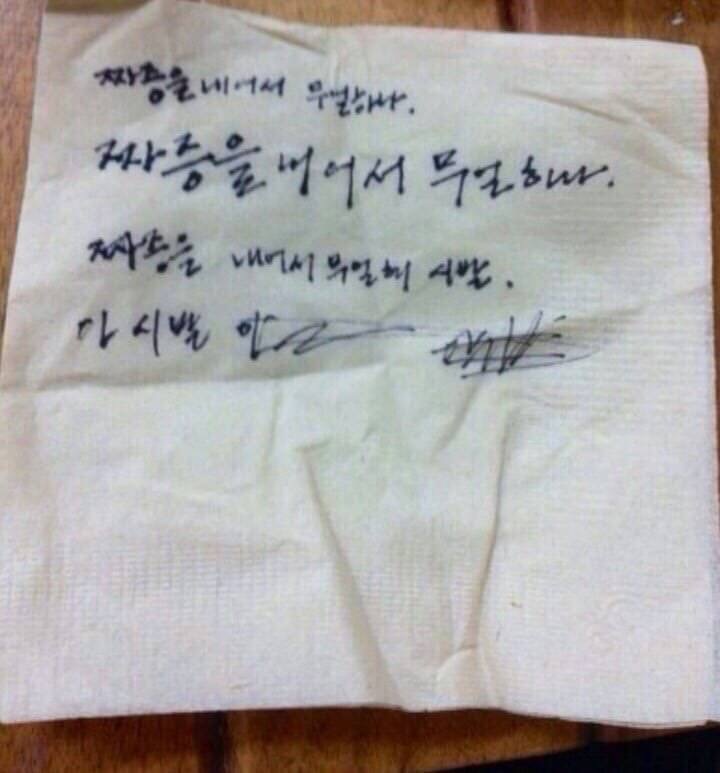 짜증을 내어서 무얼하나.
짜증을 내어서 무얼하나.
짜증을 내어서 무얼해 시발.
다 시발